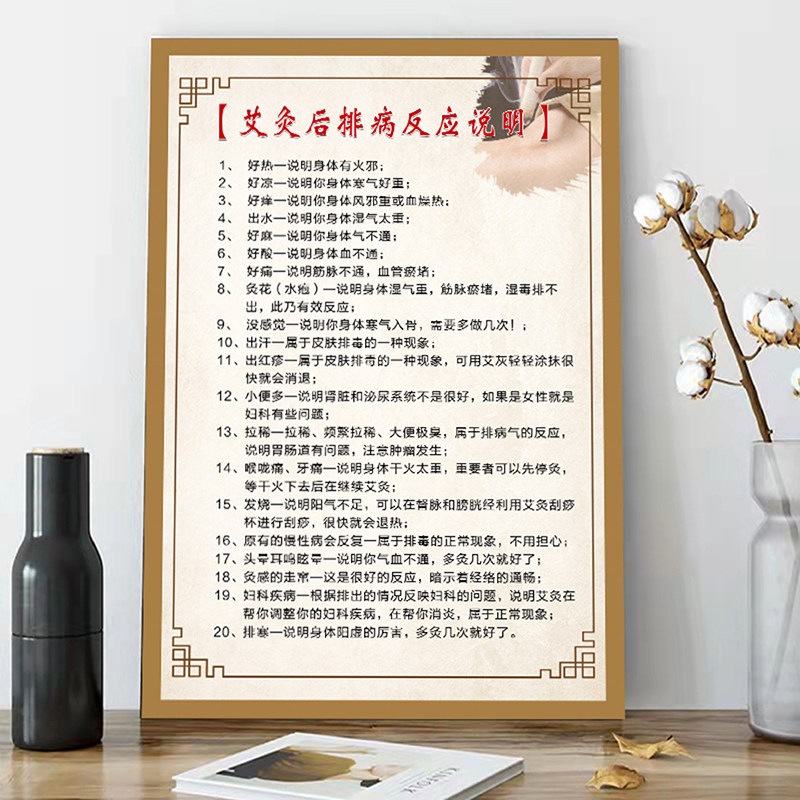 【艾灸后排病反应说明】
1、 好热一说明身体有火邪;
2、 好凉一说明你身体寒气好重;
3、 好痒一说明你身体风邪重或血燥热;
4、 出水一说明你身体湿气太重;
5、 好麻一说明你身体气不通;
6、 好酸一说明你身体血不通;
7、 好痛一说明筋脉不通，血管瘀堵;
8、 灸花（水疱）一说明身体湿气重，筋脉瘀堵，湿毒排不
出，此乃有效反应;
9、 没感觉一说明你身体寒气入骨，需要多做几次！;
10、出汗一属于皮肤排毒的一种现象;
11、出红疹一属于皮肤排毒的一种现象，可用艾灰轻轻涂抹很
快就会消退;
12、小便多一说明肾脏和泌尿系统不是很好，如果是女性就是
妇科有些问题;
13、拉稀一拉稀、频繁拉稀、大便极臭，属于排病气的反应，
说明胃肠道有问题，注意肿瘤发生;
14、喉咙痛、牙痛一说明身体干火太重，重要者可以先停灸，
等干火下去后在继续艾灸;
15、发烧一说明阳气不足，可以在督脉和膀胱经利用艾灸刮痧
杯进行刮痧，很快就会退热;
16、原有的慢性病会反复一属于排毒的正常现象，不用担心;
17、头晕耳鸣眩晕一说明你气血不通，多灸几次就好了;
18、灸感的走窜一这是很好的反应，暗示着经络的通畅;
19、妇科疾病一根据排出的情况反映妇科的问题，说明艾灸在
帮你调整你的妇科疾病，在帮你消炎，属于正常现象;
20、排寒一说明身体阳虚的厉害，多灸几次就好了。
KINFOLK